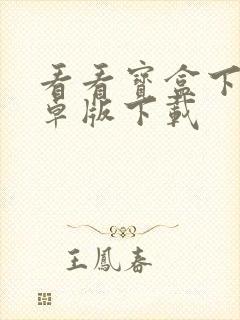 看看寶盒下
卓版下載
王鳳春